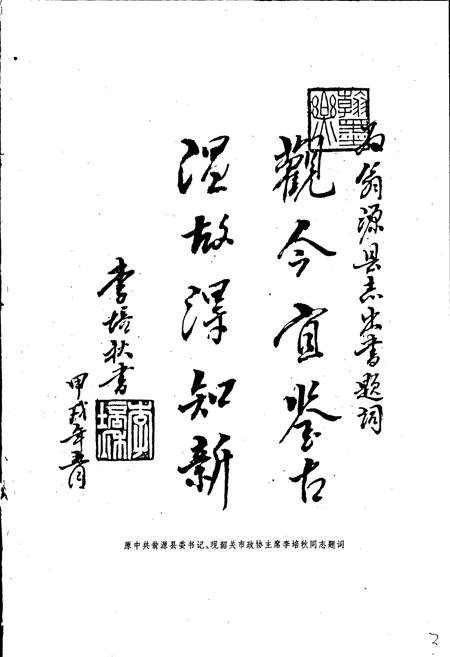 为翁源县志出书题词
觀今宜鉴古
温故得知新
李培秋书
甲戌年
翰墨樂
原中共翁源县委书记、现韶关市政协主席李培秋同志题词